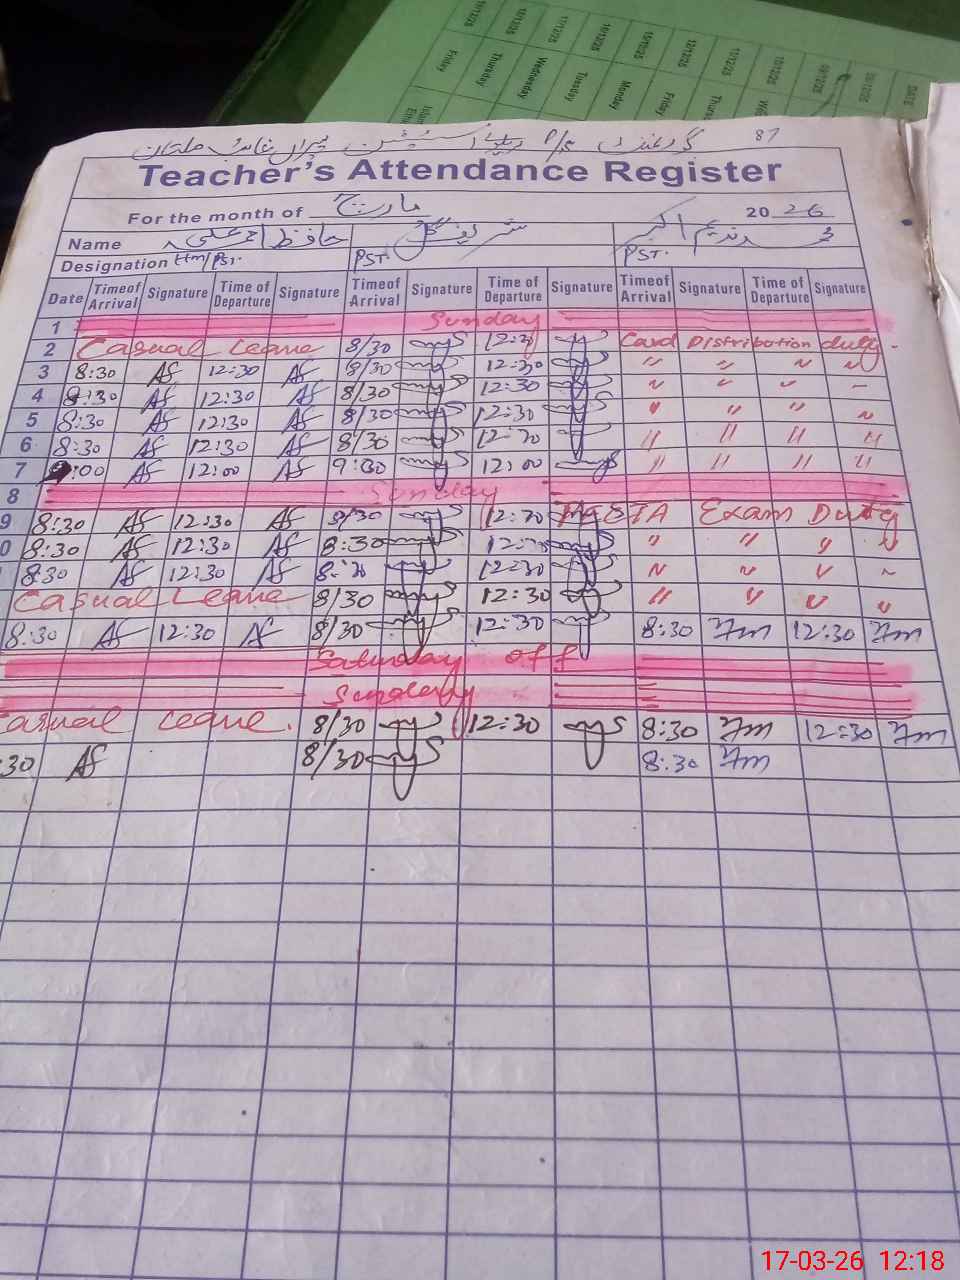 87
Teacher's Attendance Register
For the month of مارچ 2026
Name حافظ احمد علی شریف گل محمد ندیم اکبر
Designation Hm/PST. PST. PST.
Date Time of Arrival Signature Time of Departure Signature Time of Arrival Signature Time of Departure Signature Time of Arrival Signature Time of Departure Signature
1 Sunday
2 Casual Leave 8/30 12:30 Card Distribution duty.
3 8:30 AS 12:30 AS 8/30 12:30 " " " "
4 8:30 AS 12:30 AS 8/30 12:30 " " " "
5 8:30 AS 12:30 AS 8/30 12:30 " " " "
6 8:30 AS 12:30 AS 8/30 12:30 " " " "
7 9:00 AS 12:00 AS 9:00 12:00 " " " "
8 Sunday
9 8:30 AS 12:30 AS 8/30 12:30 Exam Duty
0 8:30 AS 12:30 AS 8:30 12:30 " " " "
8:30 AS 12:30 AS 8:30 12:30 " " " "
Casual Leave 8/30 12:30 " " " "
8:30 AS 12:30 AS 8/30 12:30 8:30 7m 12:30 7m
Saturday off
Sunday
asual Leave. 8/30 12:30 8:30 7m 12:30 7m
:30 AS 8/30 8:30 7m
17-03-26 12:18